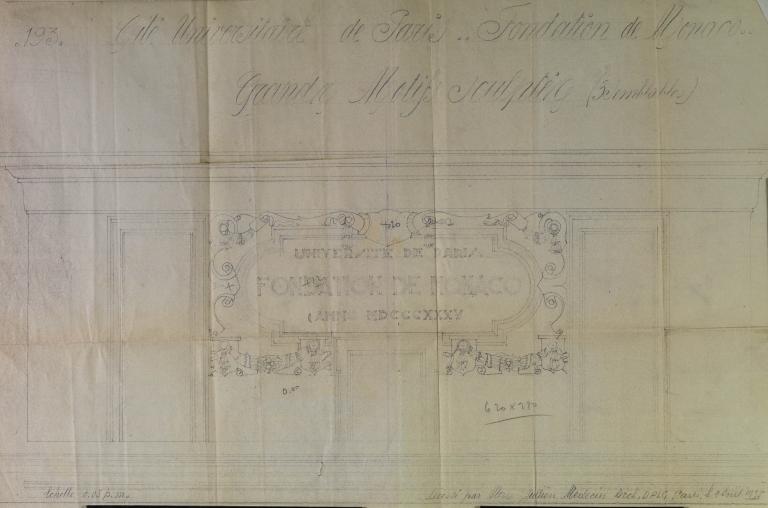 .193. Cité Universitaire de Paris .. Fondation de Monaco..
Grands Motifs Sculptés (3 semblables)
+20
UNIVERSITÉ DE PARIS
FONDATION DE MONACO
(ANNO MDCCCXXXV
0.00
620 x 290
Echelle 0.05 p.m.
Dressé par Julien Médecin Arch. D.P.L.G. Paris, le